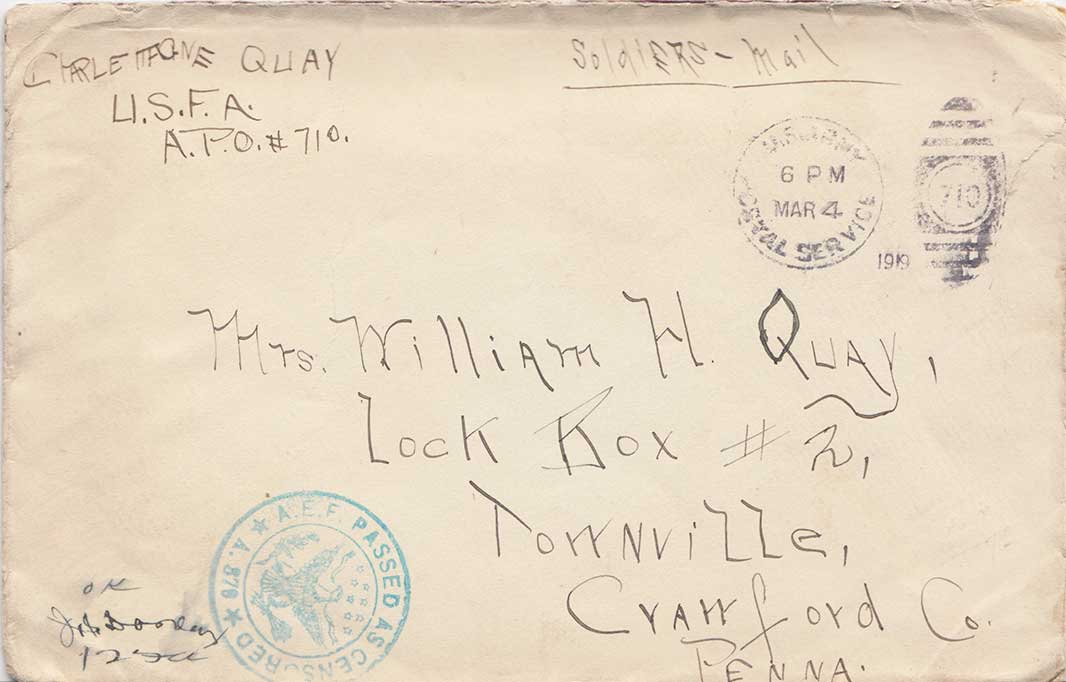 CHARLEMAGNE QUAY
U.S.F.A.
A.P.O. # 710.
SoldiERS - Mail
U.S. ARMY
POSTAL SERVICE
6 PM
MAR 4
1919
710
Mrs. William H. Quay,
Lock Box # 2,
Townville,
Crawford Co.
PENNA.
A.E.F. PASSED AS CENSORED
A. 878
OK